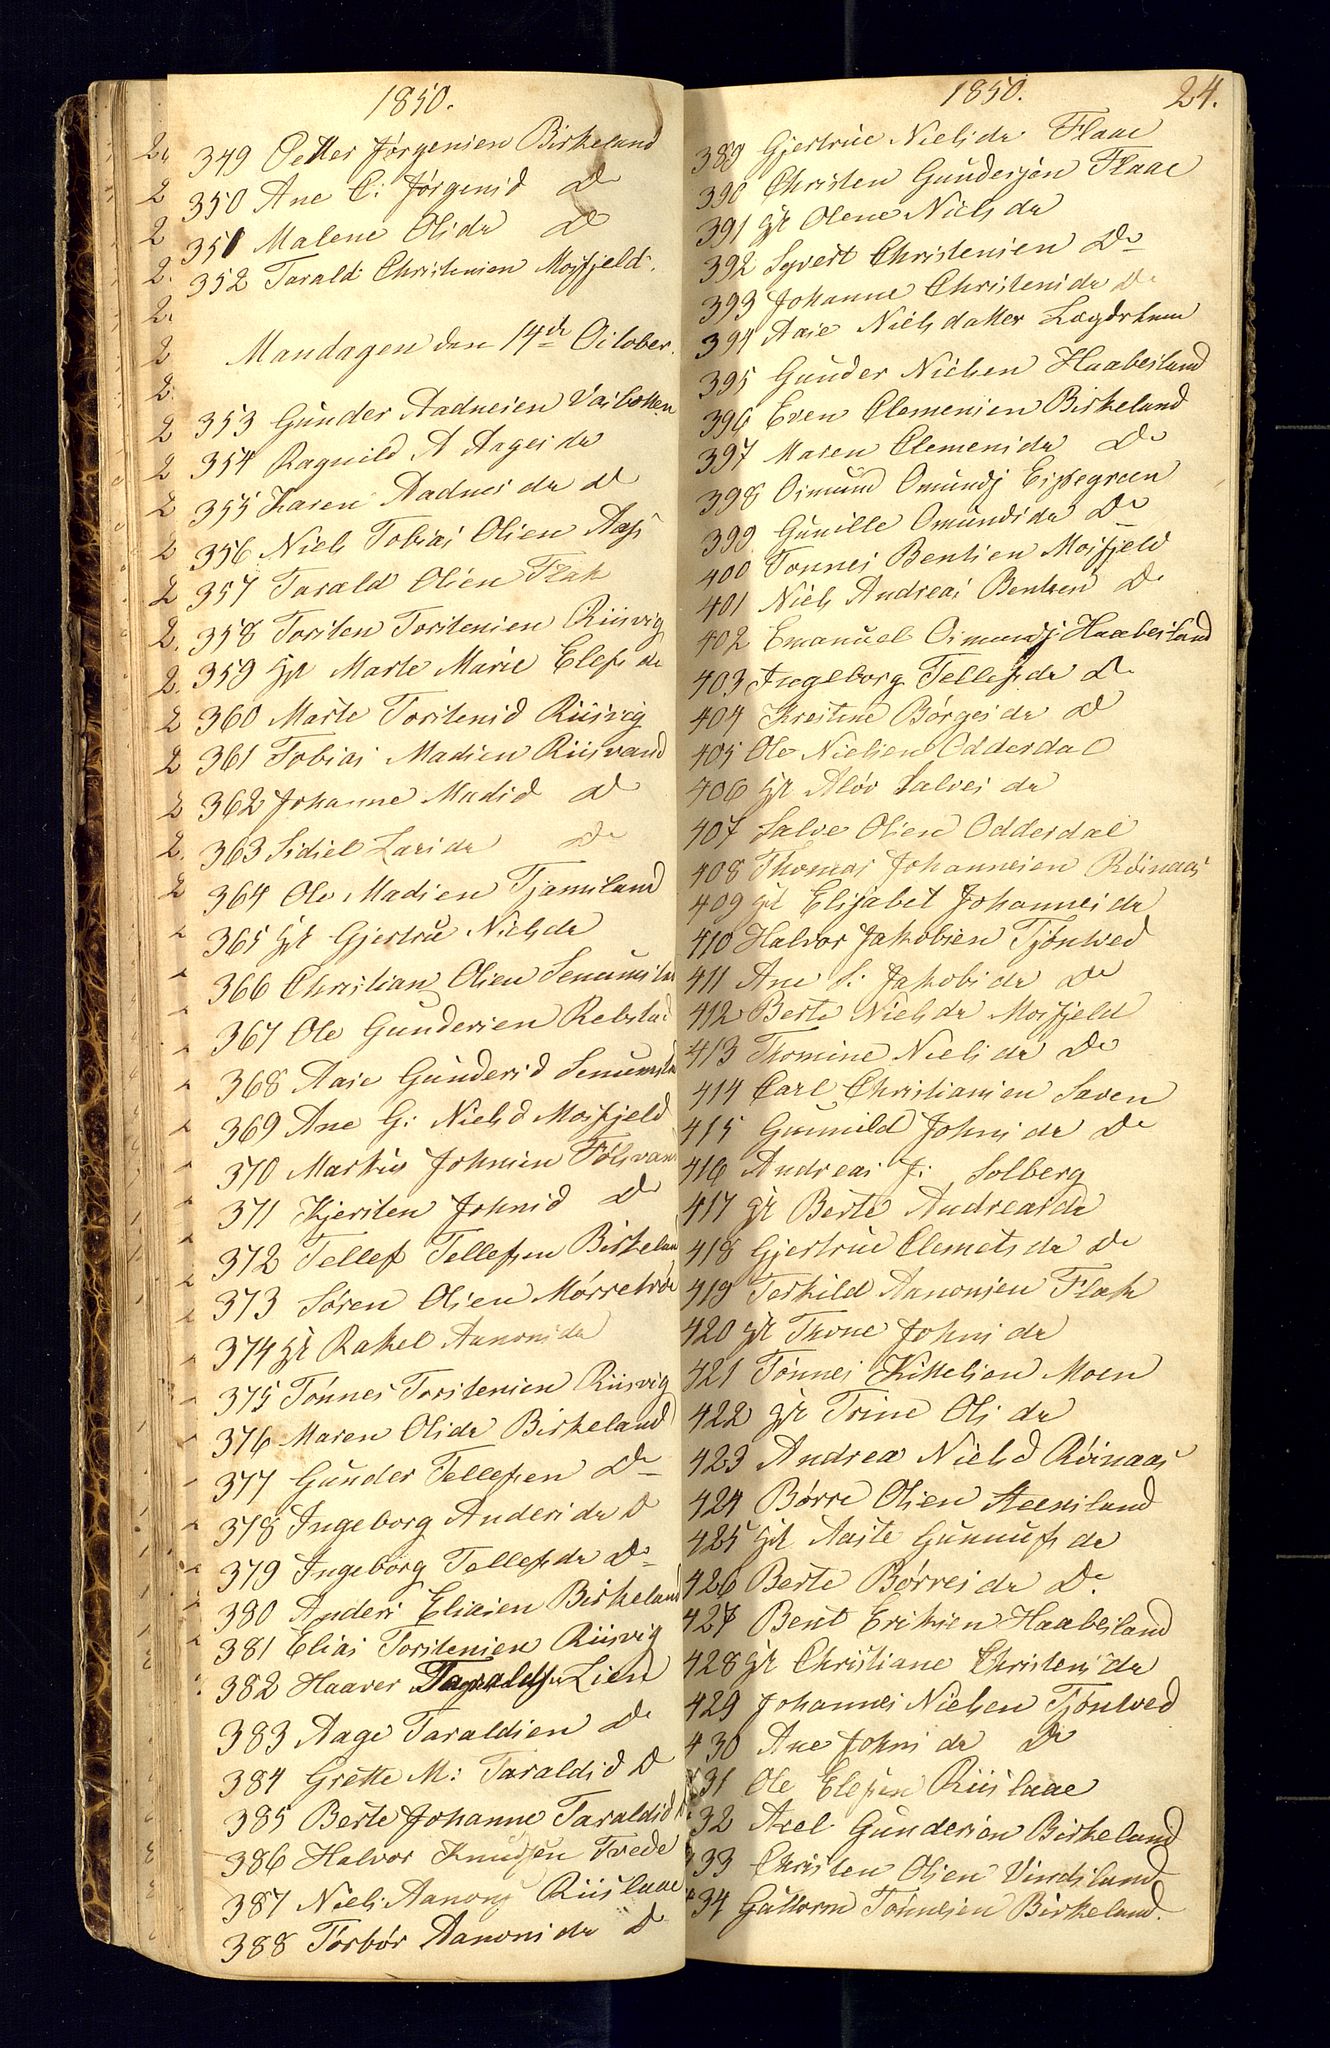 1850.
349 Petter Jørgensen Birkeland
350 Ane C: Jørgensd Do
351 Malene Olsdr Do
352 Tarald Christensen Mosfjeld.
Mandagen den 14de October.
353 Gunder Aadnesen Vasbotten
354 Ragnild A Aagesdr
355 Karen Aadnesdr Do
356 Niels Tobias Olsen Aas
357 Tarald Olsen Flak
358 Torsten Torstensen Riisvig
359 gft Marte Marie Elefsdr
360 Marte Torstensd Riisvig
361 Tobias Madsen Riisvand
362 Johanne Madsd Do
363 Sidsel Larsdr Do
364 Ole Madsen Tjamsland
365 gft Gjertru Nielsdr
366 Christian Olsen Senumsta
367 Ole Gundersen Rebstad
368 Aase Gundersd Senumsta
369 Ane G: Nielsd Mosfjeld
370 Markus Johnsen Følsvan
371 Kjersten Johnsd Do
372 Tellef Tellefsen Birkelan
373 Søren Olsen Mørretrøe
374 gft Rakel Aanonsdr
375 Tønnes Torstensen Riisvig
376 Maren Olsdr Birkeland
377 Gunder Tellefsen Do
378 Ingeborg Andersdr D
379 Ingeborg Tellefsdr Do
380 Anders Eliasen Birkeland
381 Elias Torstensen Riisvig
382 Haaver Taraldsen Lien
383 Aage Taraldsen Do
384 Grette M: Taraldsd D
385 Berte Johanne Taraldsd D
386 Halvor Knudsen Tvede
387 Niels Aanons Riislaae
388 Torbør Aanonsdr D
1850. 24.
389 Gjertrue Nielsdr Flaae
390 Christen Gundersøn Flaae
391 gft Olene Nielsdr
392 Syvert Christensen Do
393 Johanne Christensdr Do
394 Aase Nielsdatter
395 Gunder Nielsen Haabesland
396 Even Clemensen Birkeland
397 Maren Clemensdr Do
398 Osmund Omunds Espegreen
399 Gunille Omundsdr Do
400 Tønnes Bentsen Mosfjeld
401 Niels Andreas Bentsen Do
402 Emanuel Osmunds Haabesland
403 Ingeborg Tellefsdr Do
404 Krestine Børgesdr Do
405 Ole Nielsen Odderdal
406 gft Aløv Salvesdr
407 Salve Olsen Odderdal
408 Thomas Johannesen Røinaas
409 gft Elisabet Johannesdr
410 Halvor Jakobsen Tjønwed
411 Ane S: Jakobsdr Do
412 Berte Nielsdr Mosfjeld
413 Thomine Nielsdr Do
414 Carl Christiansen Saven
415 Gunnild Johnsdr Do
416 Andreas J: Solberg
417 gft Berte Andreasdr
418 Gjertrue Clemetsdr Do
419 Terkild Aanonsen Flak
420 gft Thone Johnsdr
421 Tønnes Kittelsen Moen
422 gft Trine Olsdr
423 Andrea Nielsd Røinaas
424 Børre Olsen Steensland
425 gft Aaste Gunnufsdr
426 Berte Børresdr Do
427 Bent Eriksen Haabesland
428 gft Christiane Christensdr
429 Johannes Nielsen Tjønwed
430 Ane Johnsdr Do
431 Ole Elefsen Riislaae
432 Axel Gundersen Birkeland
433 Christen Olsen Vindsland
434 Guttorm Tønnesen Birkeland.